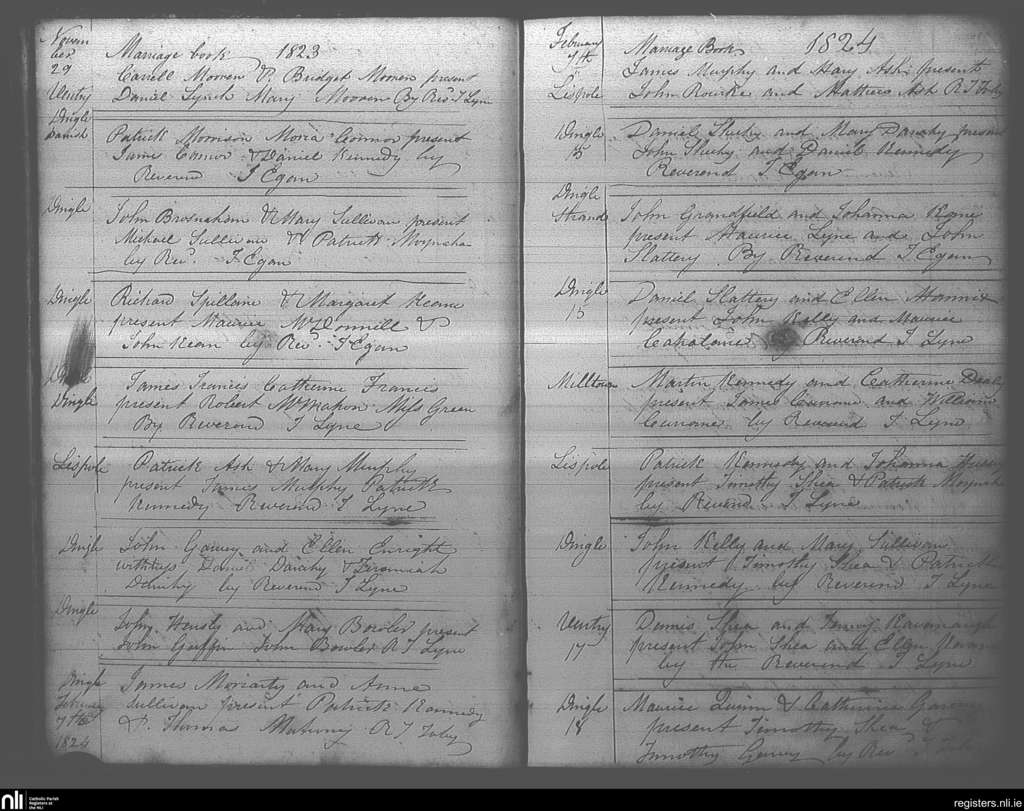 Novem
ber
29
Ventry
Marriage book 1823
Daniel Lynch Mary Mooven By Revd T Lyne
Dingle
Parish
Patrick Morrison Moria Connor present
James Connor & Daniel Kennedy by
Reverend T Egan
Dingle
John Brosnahan & Mary Sullivan present
Michael Sullivan & Patrick
by Revd. T Egan
Dingle
Richard Spillane & Margaret Keane
present Maurice McDonnill &
John Kean by Revd. T Egan
Dingle
James Francies Catherine Francis
present Robert McMahon Miss Green
By Reverend T Lyne
Lispole
Patrick Ash & Mary Murphy
present James Murphy Patrick
Kennedy Reverend T Lyne
Dingle
John Garvey and Ellen Enright
Daniel & Jeremiah
by Reverend T Lyne
Dingle
John and Mary Bowler present
John Griffin John Bowler R T Lyne
Dingle
February
7th
1824
James Moriarty and Anne
Sullivan present Patrick Kennedy
& Thomas R T
February
7th
Lispole
Marriage Book 1824
James Murphy and Mary Ash present
John Rourke and Mathew Ash R T
Dingle
15
Daniel Sheehy and Mary present
John Sheehy and Daniel Kennedy
Reverend T Egan
Dingle
Strand
John Grandfield and Johanna Kane
present Maurice Lyne and John
Slattery By Reverend T Egan
Dingle
15
Daniel Slattery and Ellen Mannix
present John Kelly and Maurice
Reverend T Lyne
Milltown
Martin Kennedy and Catherine
present James and William
by Reverend T Lyne
Lispole
Patrick Kennedy and Johanna Hussey
present Timothy Shea & Patrick
by Reverend T Lyne
Dingle
John Kelly and Mary Sullivan
present Timothy Shea & Patrick
Kennedy by Reverend T Lyne
Ventry
17
Denis Shea and Kavanaugh
present John Shea and Ellen
by the Reverend T Lyne
Dingle
18
Maurice Quinn & Catherine
present Timothy Shea &
Timothy Garvey by Revd T
nli
Catholic Parish
Registers at
the NLI
registers.nli.ie